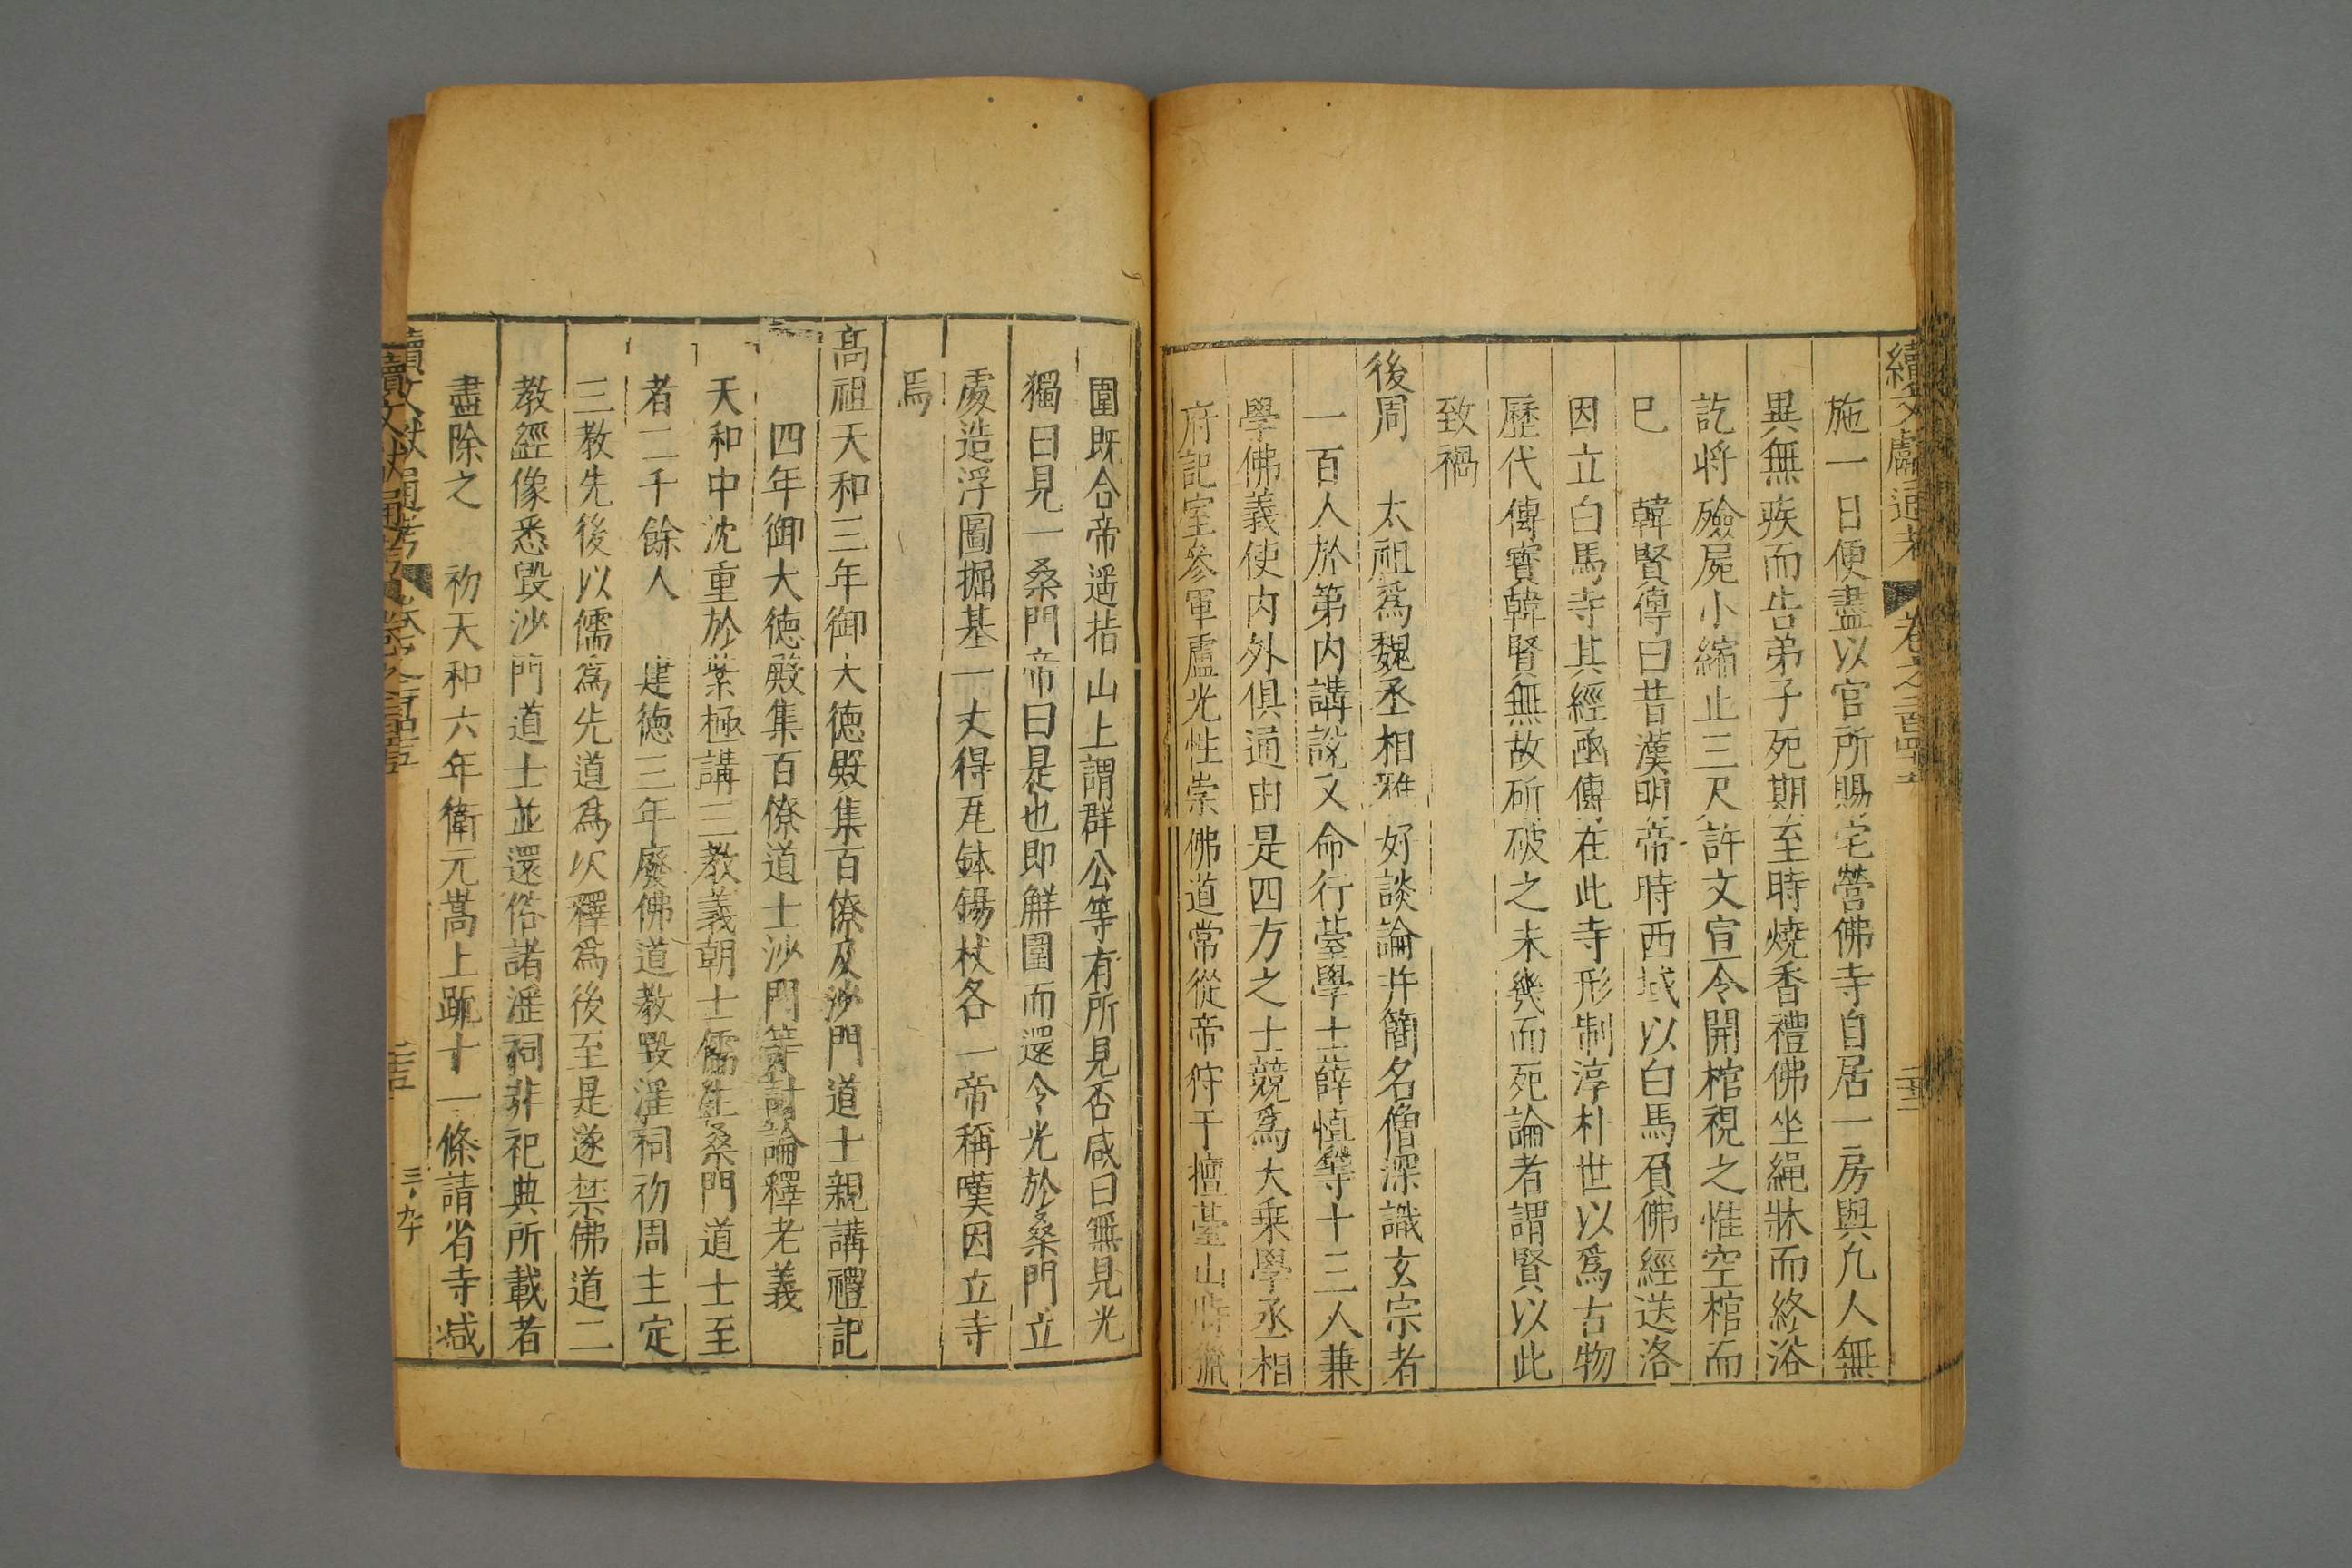 續文獻通考 卷之二百四十五 二十三
施一日便盡以官所賜宅營佛寺自居一房與凡人無
異無疾而告弟子死期至時燒香禮佛坐繩牀而終浴
訖將殮屍小縮止三尺許文宣令開棺視之惟空棺而
已 韓賢傳曰昔漢明帝時西域以白馬負佛經送洛
因立白馬寺其經函傳在此寺形制淳朴世以爲古物
歷代傳寳韓賢無故斫破之未幾而死論者謂賢以此
致禍
後周 太祖爲魏丞相雅好談論并簡名僧深識玄宗者
一百人於第内講說又命行䑓學士薛慎等十二人兼
學佛義使内外俱通由是四方之士競爲大乗學丞相
府記室參軍盧光性崇佛道常從帝狩于檀臺山時獵
圍既合帝遥指山上謂群公等有所見否咸曰無見光
獨曰見一桑門帝曰是也即觧圍而還令光於桑門立
處造浮圖掘基一丈得瓦鉢錫杖各一帝稱嘆因立寺
焉
高祖天和三年御大徳殿集百僚及沙門道士親講禮記
四年御大徳殿集百僚道士沙門等討論釋老義
天和中沈重於紫極講三教義朝士儒生桑門道士至
者二千餘人 建徳三年廢佛道教毀淫祠初周主定
三教先後以儒爲先道爲次釋爲後至是遂禁佛道二
教經像悉毀沙門道士並還俗諸淫祠非祀典所載者
盡除之 初天和六年衛元嵩上䟽十一條請省寺減
續文獻通考
三九